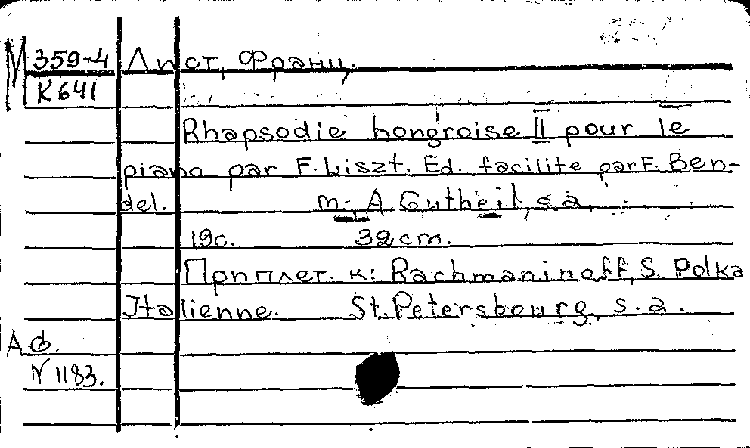 М 359-4 Лист, Франц.
К 641
Rhapsodie hongroise II pour le
piano par F. Liszt. Ed. facilite par F. Ben-
del. m., A. Gutheil, s.a.
19с. 32 cm.
Приплет. к: Rachmaninoff, S. Polka
Italienne. St. Petersbourg, s.a.
АФ.
N 1183.